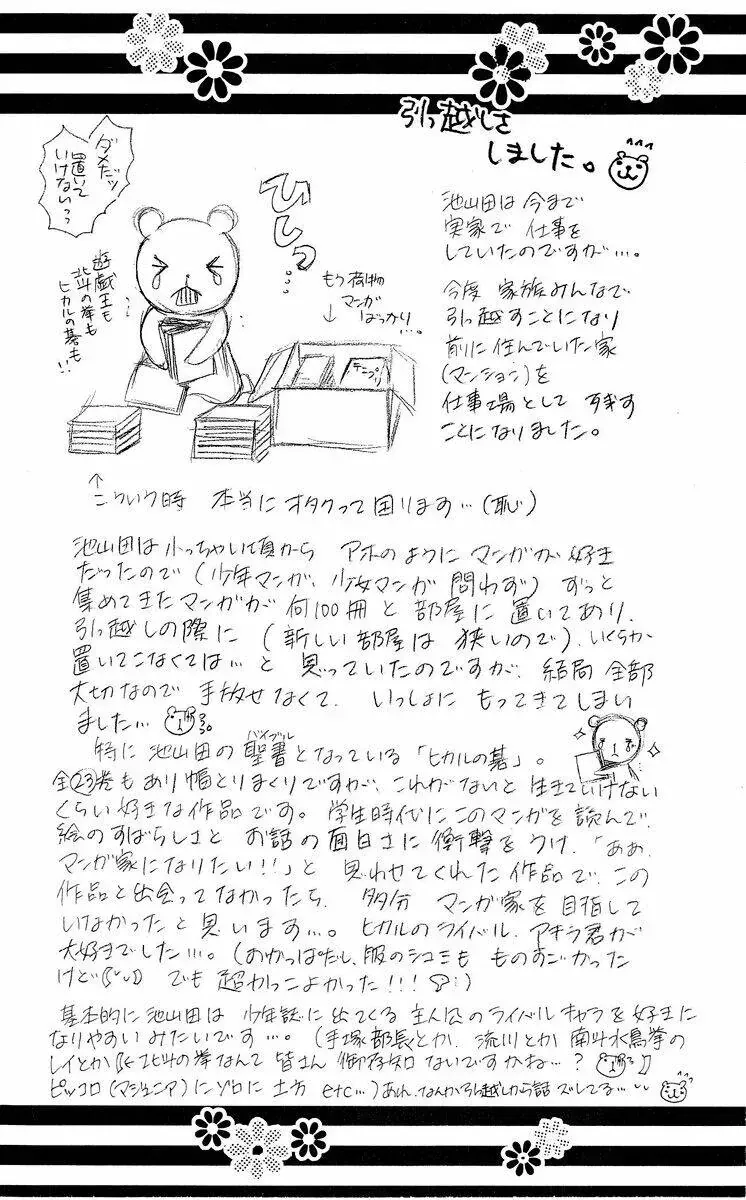 引っ越しを
しました。
ダメだッ
置いて
いけないっっ
ひしっ…
遊戯王も
北斗の拳も
ヒカルの碁も!!
もう荷物
マンガ
ばっかり…。
テニプリ
池山田は今まで
実家で仕事を
していたのですが…。
今度 家族みんなで
引っ越すことになり
前に住んでいた家
(マンション)を
仕事場として
ことになりました。
こういう時 本当にオタクって困ります…(恥)
池山田は小っちゃい頃から アホのように マンガが好き
だったので(少年マンガ、少女マンガ 問わず)ずっと
集めてきたマンガが 何100冊と 部屋に置いてあり、
引っ越しの際に (新しい部屋は 狭いので)、いくらか
置いてこなくては…と 思っていたのですが、結局 全部
大切なので 手放せなくて、いっしょに もってきてしまい
ました…
特に 池山田の聖書となっている「ヒカルの碁」。
バイブル
全23巻もあり幅とりまくりですが、これがないと 生きていけない
くらい好きな作品です。学生時代にこのマンガを読んで、
絵のすばらしさと お話の面白さに衝撃をうけ、「ああ、
マンガ家になりたい!!」と 思わせてくれた作品で、この
作品と出会ってなかったら、多分 マンガ家を目指して
いなかったと思います…。ヒカルのライバル、アキラ君が
大好きでした…。(おかっぱだし、服のシュミも ものすごかった
けど でも 超かっこよかった!!!)
基本的に池山田は 少年誌に出てくる 主人公のライバルキャラを好きに
なりやすいみたいです…。(手塚部長とか、流川とか 南斗水鳥拳の
レイとか 北斗の拳なんて 皆さん 御存知ないですかね…?
ピッコロ(マジュニア)にゾロに 土方 etc…)あれ、なんか引っ越しから話ズレてる…